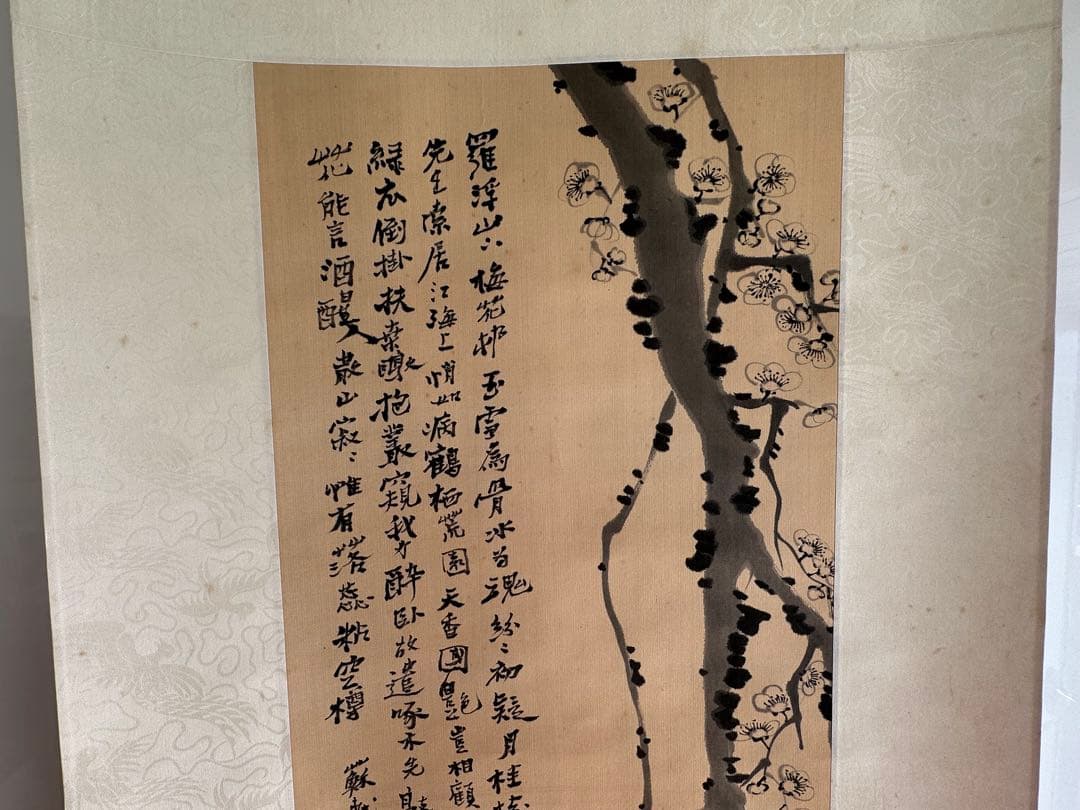 羅浮山下梅花邨玉雪為骨冰为魂紛〻初疑月桂
先生索居江海上悄如病鶴栖荒園天香國艷豈相顧
綠衣倒掛扶桑暾抱叢窺我方醉臥故遣啄木先
花能言酒醒人散山寂〻惟有落蕊粘空樽 蘇